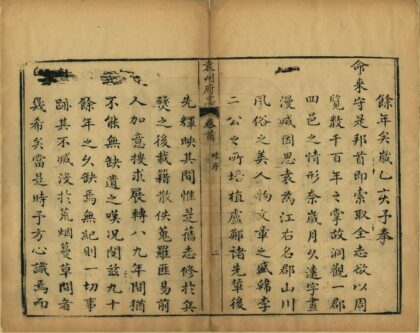 餘年矣歲乙亥予奉
命来守是邦首即索取全志欲以周
覽數千百年之掌故洞觀一郡
四邑之情形奈歲月久遠字畫
漫滅因思袁為江右名郡山川
風俗之美人物文章之盛韓李
二公之所培植盧鄭諸先輩後
袁州府志
卷首
序
二
先輝映其間惟是舊志修於兵
燹之後載籍散佚蒐羅匪易前
人加意搜求展轉八九年間猶
不能無缺遺之嘆况閱茲九十
餘年之久缺焉無紀則一切事
跡其不滅沒於荒烟蔓草間者
幾希矣當是時予方心識焉而